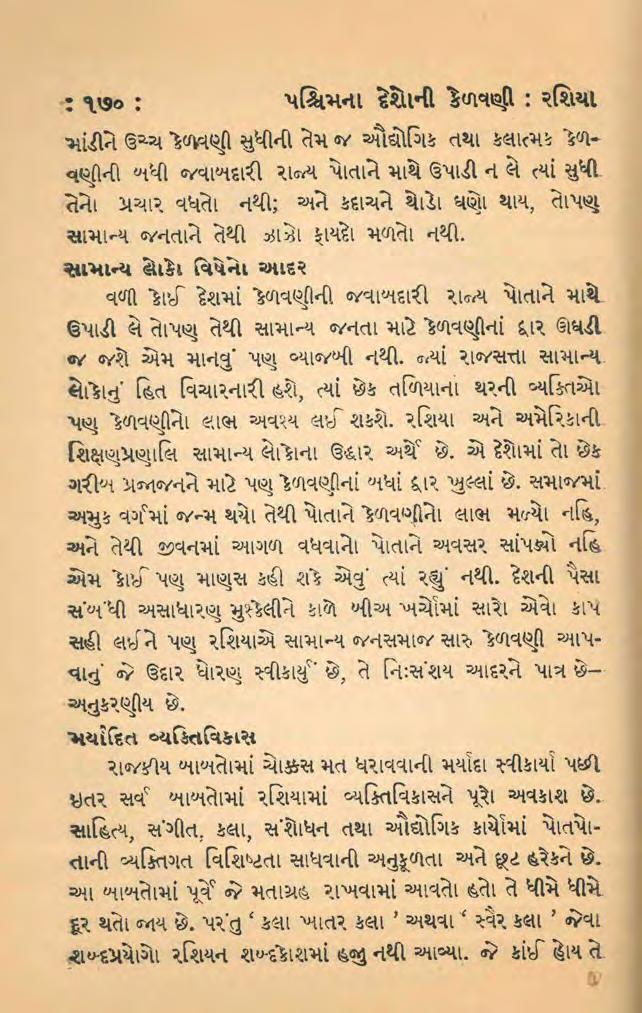 : ૧૭૦ : પશ્ચિમના દેશોની કેળવણી : રશિયા
માંડીને ઉચ્ચ કેળવણી સુધીની તેમ જ ઔદ્યોગિક તથા કલાત્મક કેળ-
વણીની બધી જવાબદારી રાજ્ય પોતાને માથે ઉપાડી ન લે ત્યાં સુધી
તેનો પ્રચાર વધતો નથી; અને કદાચને થોડો ઘણો થાય, તોપણ
સામાન્ય જનતાને તેથી ઝાઝો ફાયદો મળતો નથી.
સામાન્ય લોકો વિષેનો આદર
વળી કોઈ દેશમાં કેળવણીની જવાબદારી રાજ્ય પોતાને માથે
ઉપાડી લે તોપણ તેથી સામાન્ય જનતા માટે કેળવણીનાં દ્વાર ઊઘડી
જ જશે એમ માનવું પણ વ્યાજબી નથી. જ્યાં રાજસત્તા સામાન્ય
લોકોનું હિત વિચારનારી હશે, ત્યાં છેક તળિયાના થરની વ્યક્તિઓ
પણ કેળવણીનો લાભ અવશ્ય લઈ શકશે. રશિયા અને અમેરિકાની
શિક્ષણપ્રણાલિ સામાન્ય લોકોના ઉદ્ધાર અર્થે છે. એ દેશોમાં તો છેક
ગરીબ પ્રજાજનને માટે પણ કેળવણીનાં બધાં દ્વાર ખુલ્લાં છે. સમાજમાં
અમુક વર્ગમાં જન્મ થયો તેથી પોતાને કેળવણીનો લાભ મળ્યો નહિ,
અને તેથી જીવનમાં આગળ વધવાનો પોતાને અવસર સાંપડ્યો નહિ
એમ કોઈ પણ માણસ કહી શકે એવું ત્યાં રહ્યું નથી. દેશની પૈસા
સંબંધી અસાધારણ મુશ્કેલીને કાળે બીજા ખર્ચોમાં સારો એવો કાપ
સહી લઈને પણ રશિયાએ સામાન્ય જનસમાજ સારુ કેળવણી આપ-
વાનું જે ઉદાર ધોરણ સ્વીકાર્યું છે, તે નિઃસંશય આદરને પાત્ર છે–
અનુકરણીય છે.
મર્યાદિત વ્યક્તિવિકાસ
રાજકીય બાબતોમાં ચોક્કસ મત ધરાવવાની મર્યાદા સ્વીકાર્યા પછી
ઇતર સર્વ બાબતોમાં રશિયામાં વ્યક્તિવિકાસને પૂરો અવકાશ છે.
સાહિત્ય, સંગીત, કલા, સંશોધન તથા ઔદ્યોગિક કાર્યોમાં પોતપો-
તાની વ્યક્તિગત વિશિષ્ટતા સાધવાની અનુકૂળતા અને છૂટ હરેકને છે.
આ બાબતોમાં પૂર્વે જે મતાગ્રહ રાખવામાં આવતો હતો તે ધીમે ધીમે
દૂર થતો જાય છે. પરંતુ ‘ કલા ખાતર કલા ’ અથવા ‘ સ્વૈર કલા ’ જેવા
શબ્દપ્રયોગો રશિયન શબ્દકોશમાં હજુ નથી આવ્યા. જે કાંઈ હોય તે